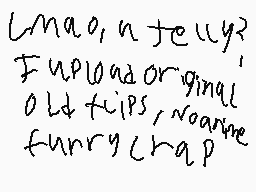 Lmao, u jelly?
I upload original
old flips, No anime
furry crap